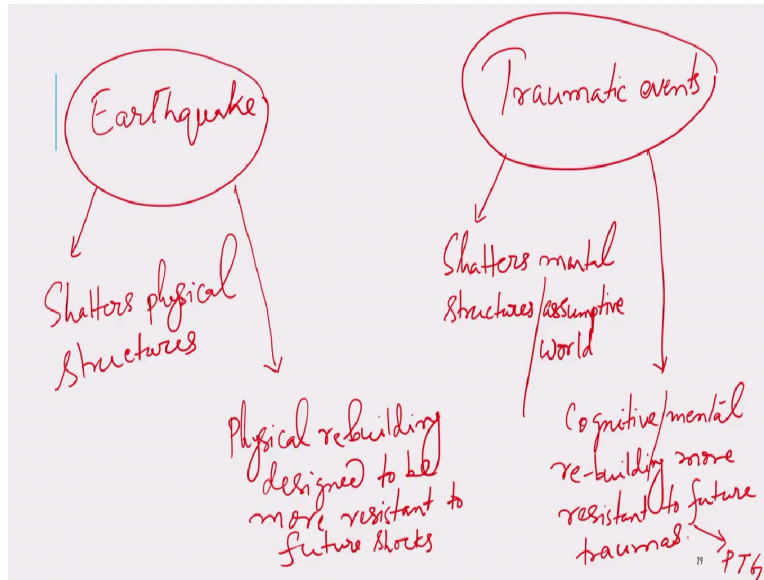 Earthquake
Shatters physical
structures
Physical rebuilding
designed to be
more resistant to
future shocks
Traumatic events
Shatters mental
structures/assumptive
world
Cognitive/mental
re-building more
resistant to future
traumas.
PTG
29